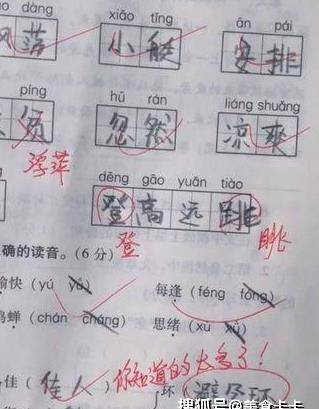 dàng xiǎo tǐng ān pái
荡 小 艇 安 排
píng hū rán liáng shuǎng
忽 然 凉 爽
浮萍
dēng gāo yuǎn tiào
登 高 远 跳
登 眺
确的读音。(6分)
愉快 (yú yù) 每逢 (féng fōng)
鸣蝉 (chán cháng) 思绪 (xu xù)
佳 (佳人) 你知道的太多了! 环 (避孕环
搜狐号@美食卡卡